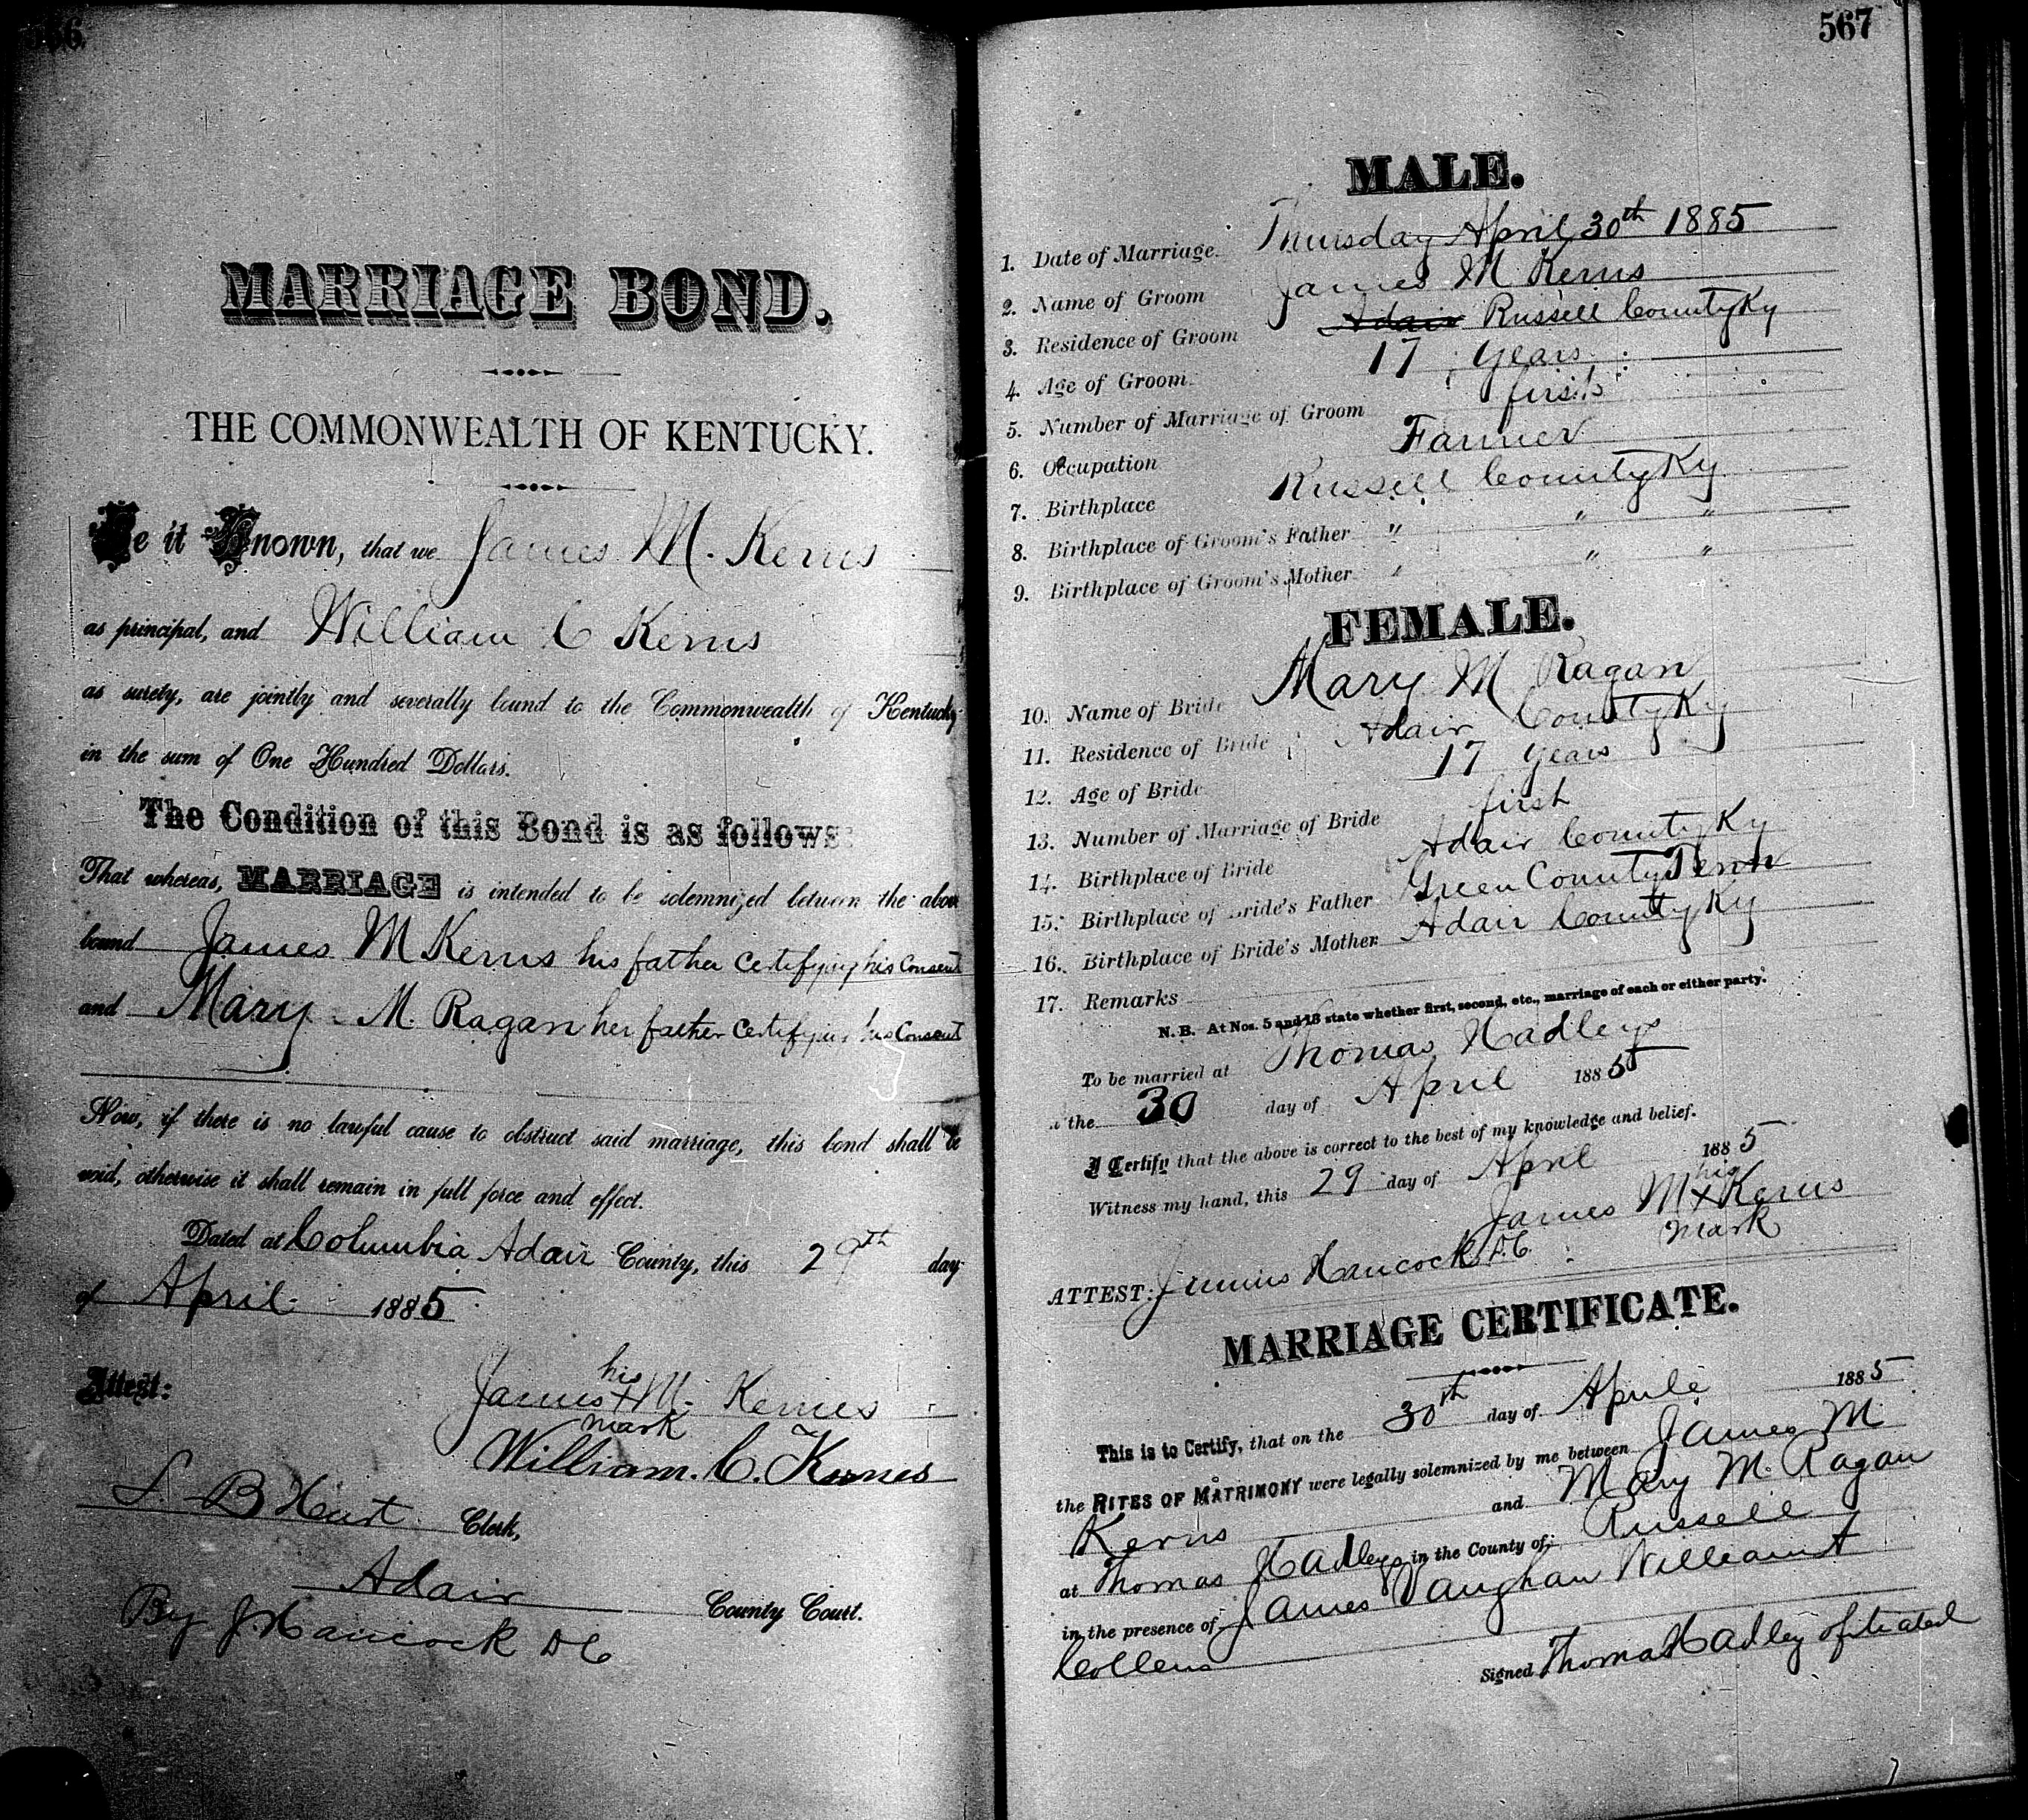 MARRIAGE BOND.
THE COMMONWEALTH OF KENTUCKY.
Be it Known, that we James M. Kerns
as principal, and William C Kerns
as surety, are jointly and severally bound to the Commonwealth of Kentucky
in the sum of One Hundred Dollars.
The Condition of this Bond is as follows:
That whereas, MARRIAGE is intended to be solemnized between the above
bound James M Kerns his father certifying his Consent
and Mary M. Ragan her father certifying his Consent
Now, if there is no lawful cause to obstruct said marriage, this bond shall be
void, otherwise it shall remain in full force and effect.
Dated at Columbia Adair County, this 29th day
of April 1885
Attest:
his
James + M. Kernes
mark
William. C. Kernes
Clerk,
Adair County Court.
By J. Hancock DC
567
MALE.
1. Date of Marriage. Thursday April 30th 1885
2. Name of Groom James M Kerns
3. Residence of Groom Adair Russell County Ky
4. Age of Groom. 17 Years
5. Number of Marriage of Groom first
6. Occupation Farmer
7. Birthplace Russell County Ky
8. Birthplace of Groom's Father " " "
9. Birthplace of Groom's Mother " " "
FEMALE.
10. Name of Bride Mary M Ragan
11. Residence of Bride Adair County Ky
12. Age of Bride 17 Years
13. Number of Marriage of Bride first
14. Birthplace of Bride Adair County Ky
15. Birthplace of Bride's Father Green County Tenn
16. Birthplace of Bride's Mother Adair County Ky
17. Remarks
N. B. At Nos. 5 and 13 state whether first, second, etc., marriage of each or either party.
To be married at Thomas Hadleys
the 30 day of April 1885
I Certify that the above is correct to the best of my knowledge and belief.
Witness my hand, this 29 day of April 1885
his
James M x Kerns
mark
ATTEST: Junius Hancock D.C.
MARRIAGE CERTIFICATE.
This is to Certify, that on the 30th day of Aprile 1885
the RITES OF MATRIMONY were legally solemnized by me between James M
Kerns and Mary M. Ragan
at Thomas Hadleys in the County of Russell
in the presence of James Vaughan William
Collens
Signed Thomas Hadley ofitiated